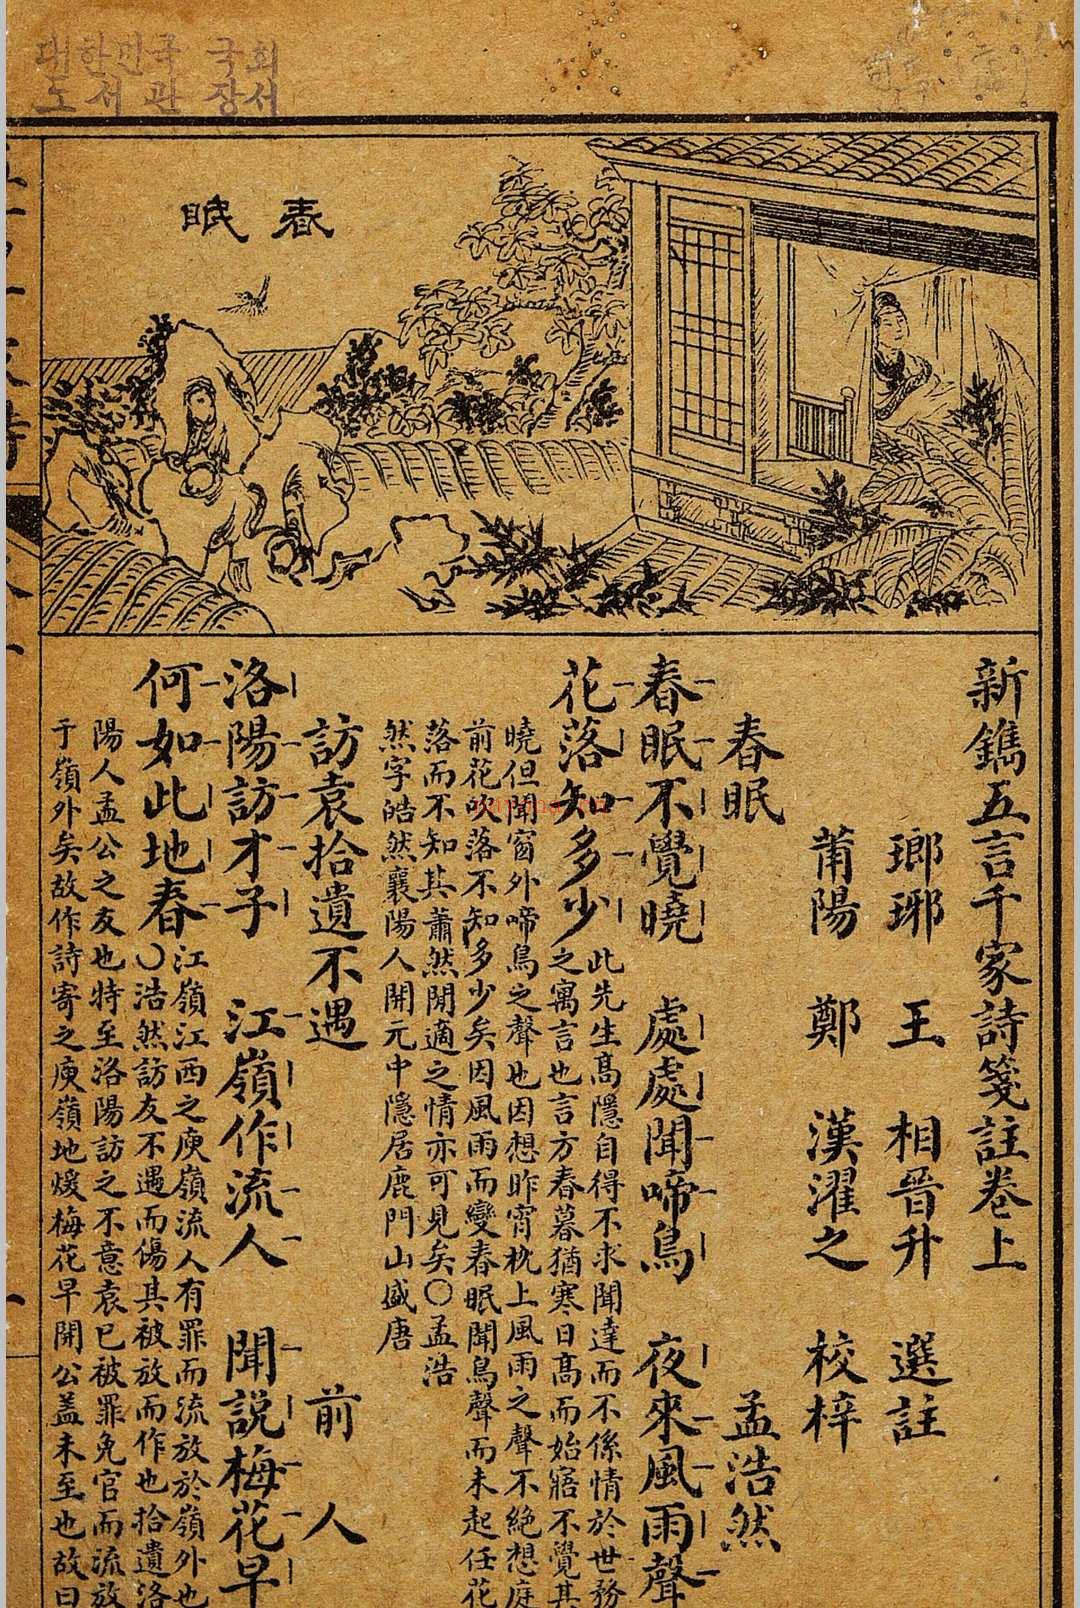 대한민국 국회
도서관 장서
春眠
新鐫五言千家詩箋註卷上
瑯琊 王 相晉升 選註
莆陽 鄭 漢濯之 校梓
春眠 孟浩然
春眠不覺曉 處處聞啼鳥 夜來風雨聲
花落知多少 此先生高隱自得不求聞達而不係情於世務
之寓言也言方春暮猶寒日高而始寤不覺其
曉但聞窗外啼鳥之聲也因想昨宵枕上風雨之聲不絕想庭
前花吹落不知多少矣因風雨而變春眠聞鳥聲而未起任花
落而不知其蕭然閒適之情亦可見矣〇孟浩
然字皓然襄陽人開元中隱居鹿門山盛唐
訪袁拾遺不遇 前人
洛陽訪才子 江嶺作流人 聞說梅花早
何如此地春 江嶺江西之庾嶺流人有罪而流放於嶺外也
〇浩然訪友不遇而傷其被放而作也拾遺洛
陽人孟公之友也特至洛陽訪之不意袁已被罪免官而流放
于嶺外矣故作詩寄之庾嶺地煖梅花早開公蓋未至也故曰